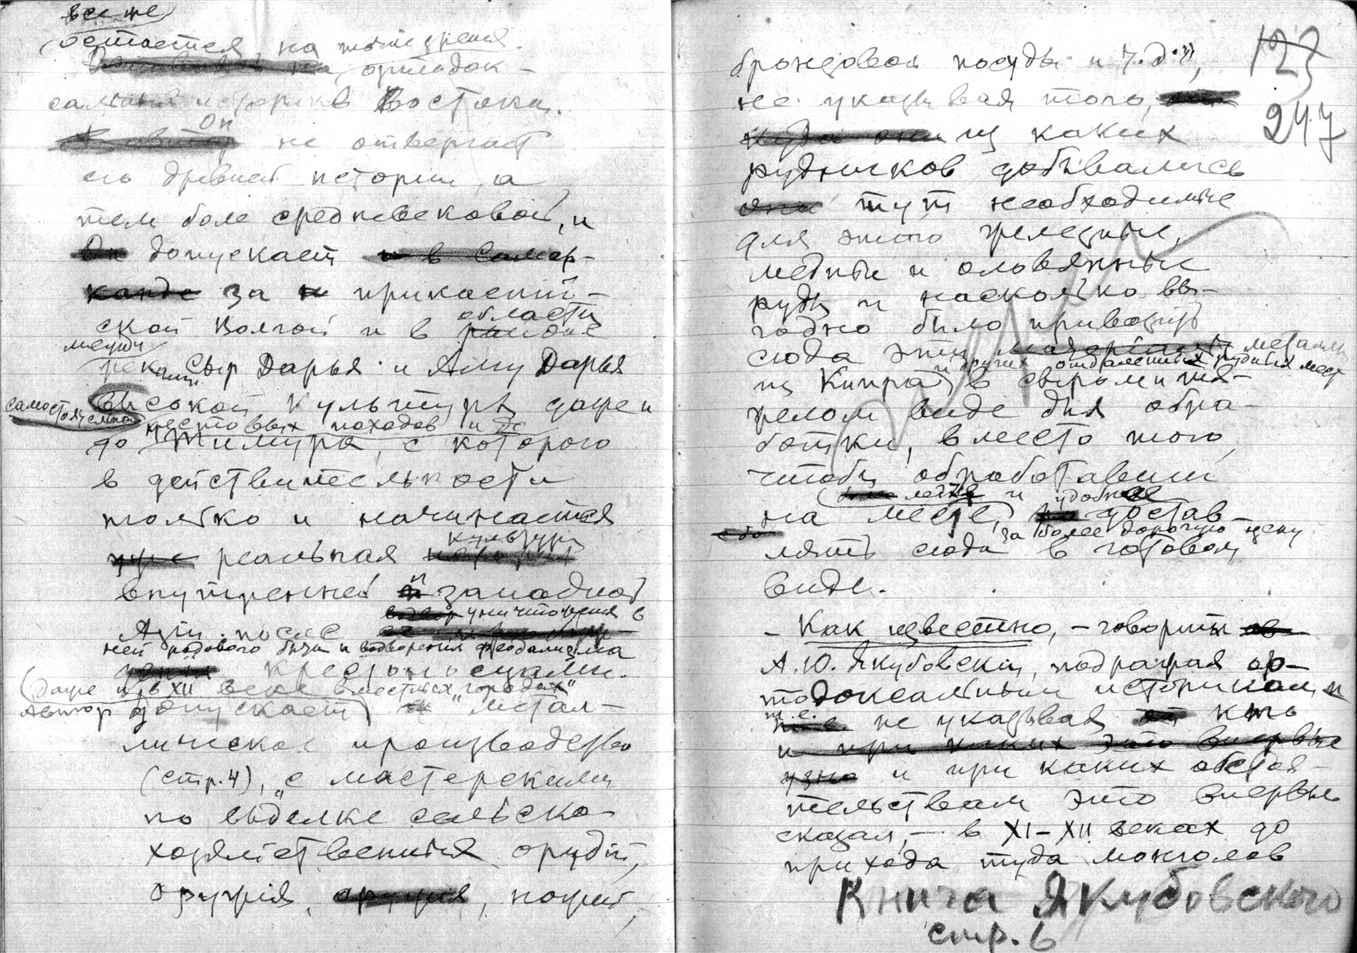 все же
остается на точке зрения
ортодок-
сальной истории Востока.
Он не отвергает
его древней истории, а
тем боле средневековой, и
допускает
за прикаспий-
ской Волгой и в области
между
реками Сыр Дарья и Аму Дарья
самостоятельно
высокой культуры даже и
местовых походов и до
до Тимура, с которого
в действительности
только и начинается
реальная культура
внутренней и западной
Азии после уничтожения в
ней родового быта и водворения феодализма
крестоносцами.
(даже и в XII веке в местных „городах“
Автор допускает) метал-
лическое производство
(стр. 4), „с мастерскими
по выделке сельско-
хозяйственных орудий,
оружия, ножей,
123
247
бронзовой посуды и т.д.“,
не указывая того,
из каких
рудников добывались
тут необходимые
для этого железные,
медные и оловянные
руды и насколько вы-
годно было привозить
сюда эти металлы
и других отдаленных рудных мест
из Кипра в сыром и тя-
желом виде для обра-
ботки, вместо того,
чтобы, обработавши
легче и удобнее
на месте, достав-
за более дорогую цену
лять сюда в готовом
виде.
– Как известно, – говорит
А.Ю. Якубовский, подражая ор-
тодоксальным историкам и
т.е. не указывая кто
и при каких обстоя-
тельствах это впервые
сказал, – в XI–XII веках до
прихода туда монголов
Книга Якубовского
стр. 6